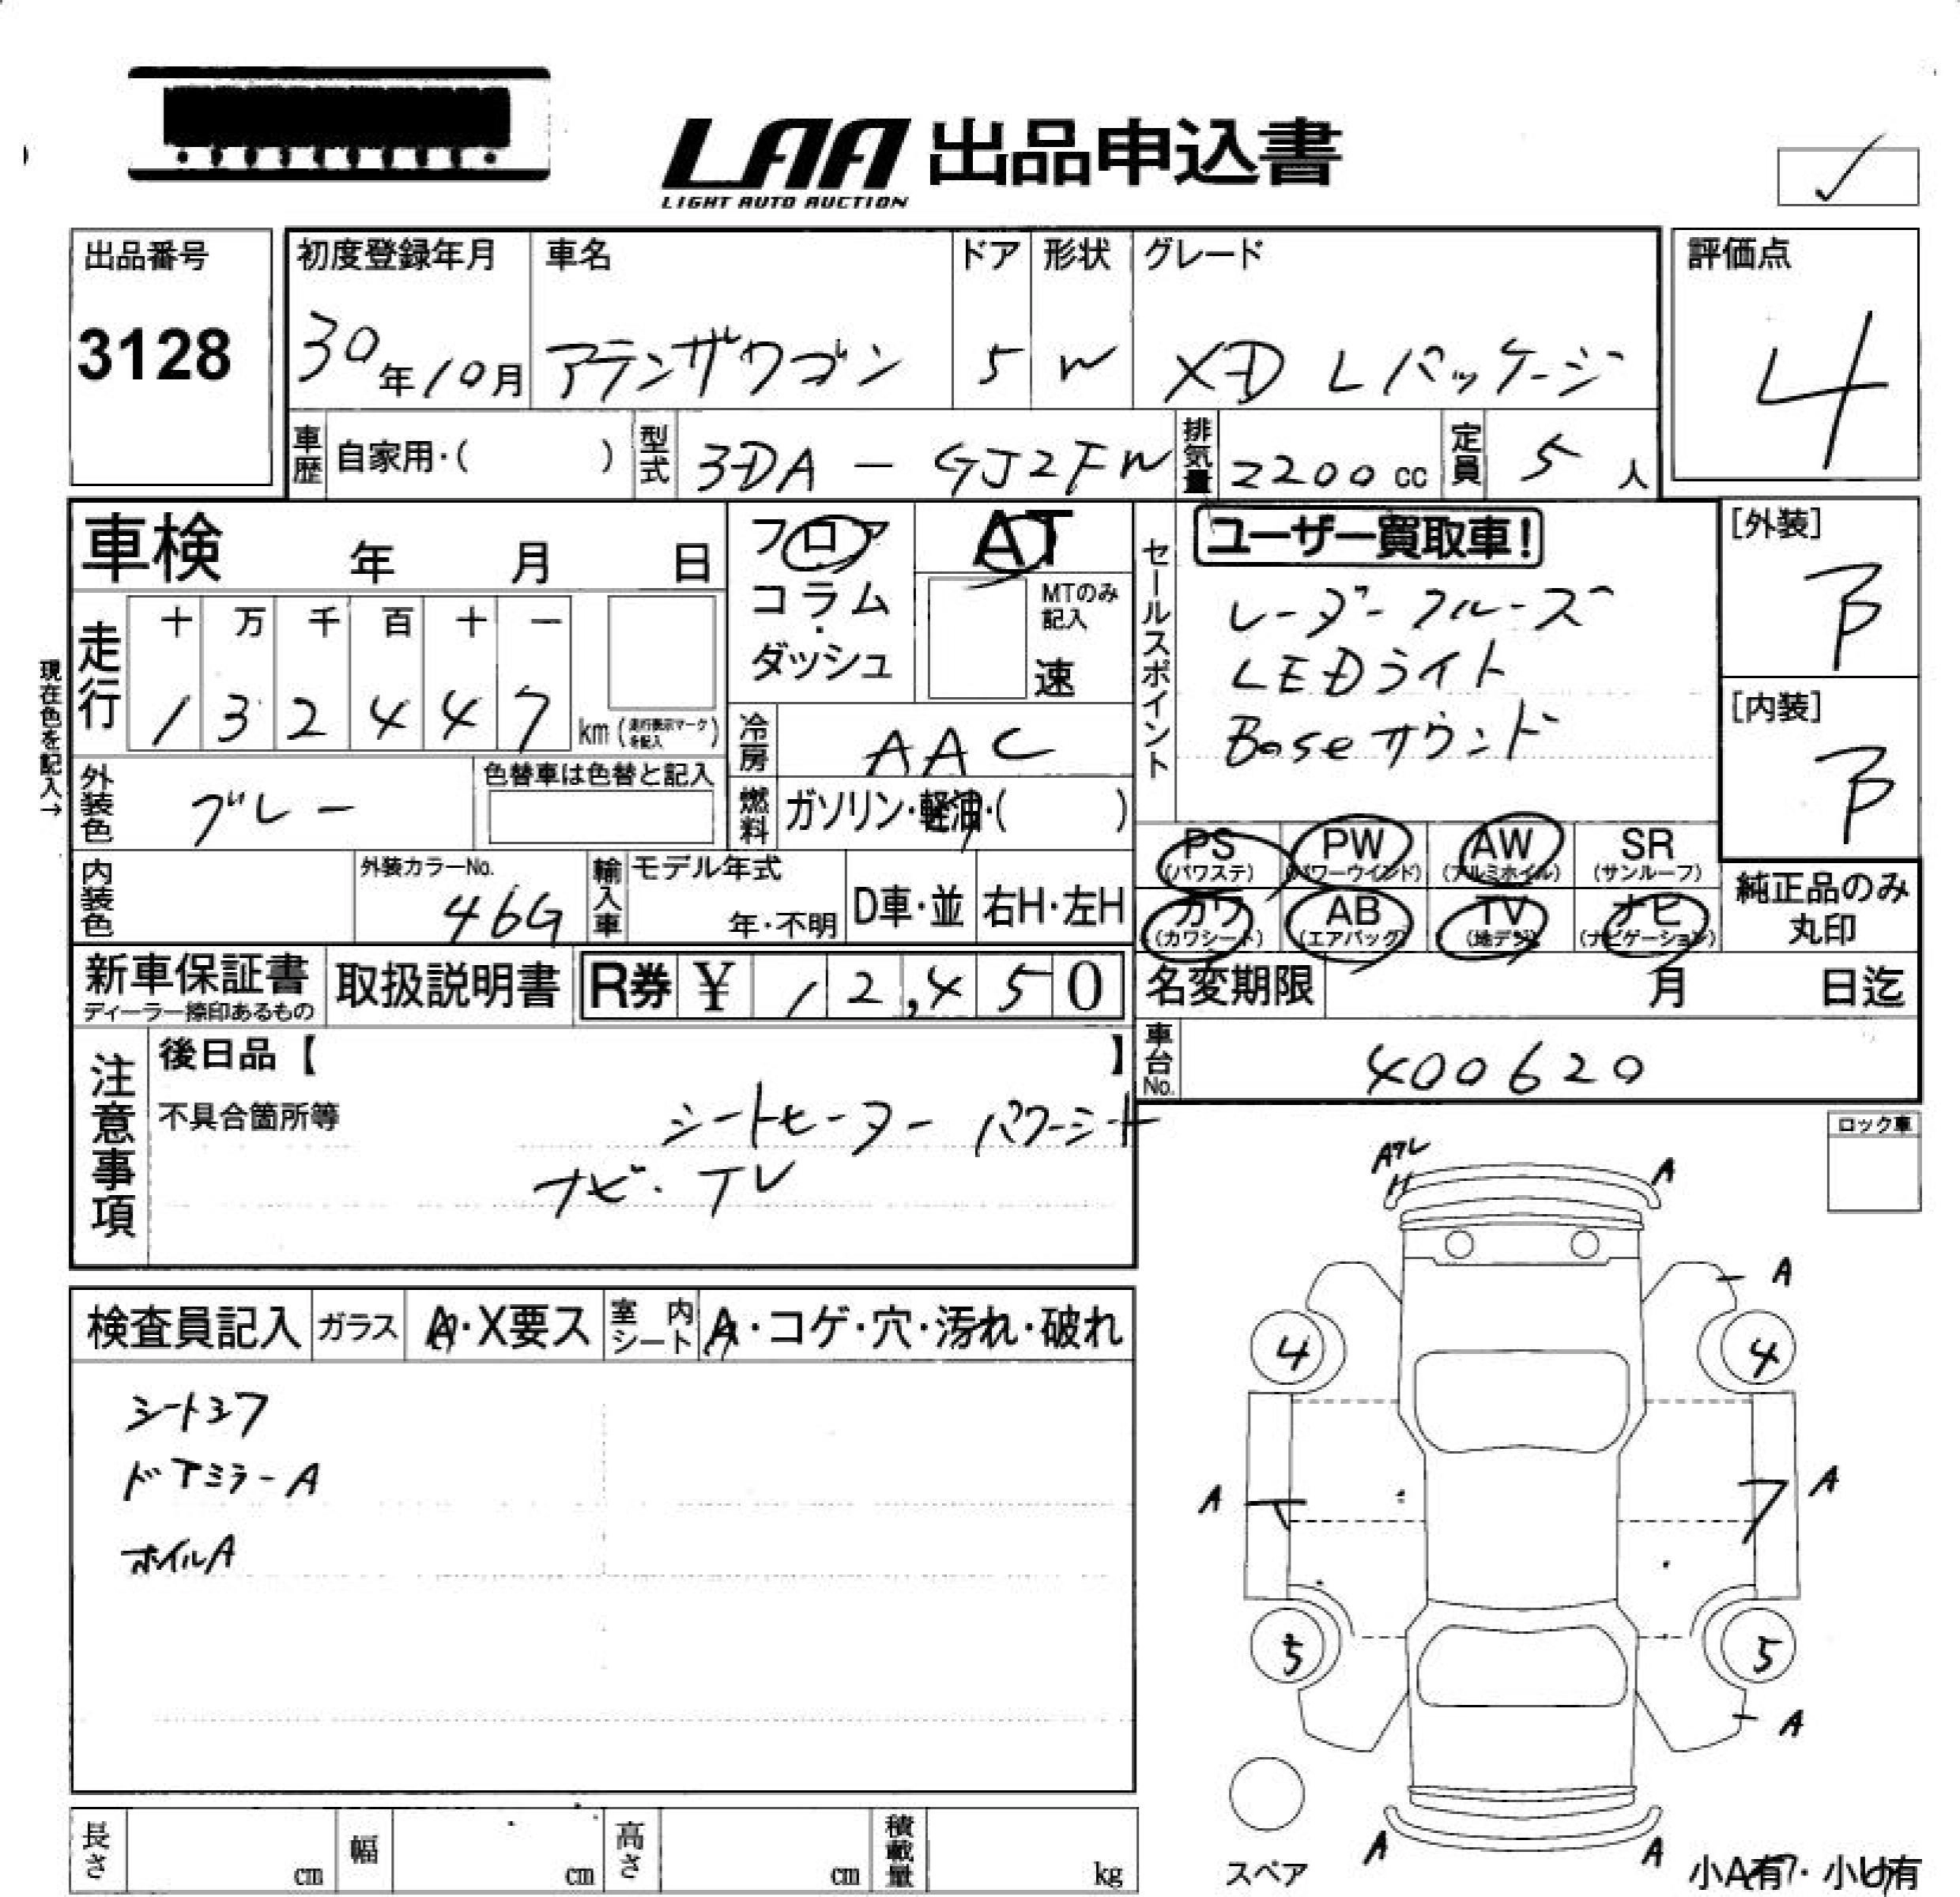 LAA 出品申込書
LIGHT AUTO AUCTION
出品番号
3128
初度登録年月
30年10月
車名
アテンザワゴン
ドア
5
形状
W
グレード
XD Lパッケージ
評価点
4
車歴
自家用・( )
型式
3DA - GJ2FW
排気量
2200 cc
定員
5 人
車検 年 月 日
フロア
コラム・
ダッシュ
AT
MTのみ
記入
速
セールスポイント
ユーザー買取車!
レーダークルーズ
LEDライト
Boseサウンド
[外装]
B
[内装]
B
現在色を記入→
走行
十 万 千 百 十 一
1 3 2 4 4 7
km (走行表示マークを記入)
冷房
AAC
外装色
グレー
色替車は色替と記入
燃料
ガソリン・軽油・( )
PS
(パワステ)
PW
(パワーウインド)
AW
(アルミホイル)
SR
(サンルーフ)
内装色
外装カラーNo.
46G
輸入車
モデル年式
年・不明
D車・並
右H・左H
カワ
(カワシート)
AB
(エアバッグ)
TV
(地デジ)
ナビ
(ナビゲーション)
純正品のみ
丸印
新車保証書
ディーラー捺印あるもの
取扱説明書
R券 ¥ 12,450
名変期限 月 日迄
車台No.
400620
注意事項
後日品【 】
不具合箇所等
シートヒーター パワーシート
ナビ・TV
ロック車
検査員記入
ガラス
A・X要ス
室内シート
A・コゲ・穴・汚れ・破れ
シートシワ
ドアミラーA
ホイルA
A
A
4
4
A
A
5
A
A
A
スペア
小A有・小U有
長さ
cm
幅
cm
高さ
cm
積載量
kg